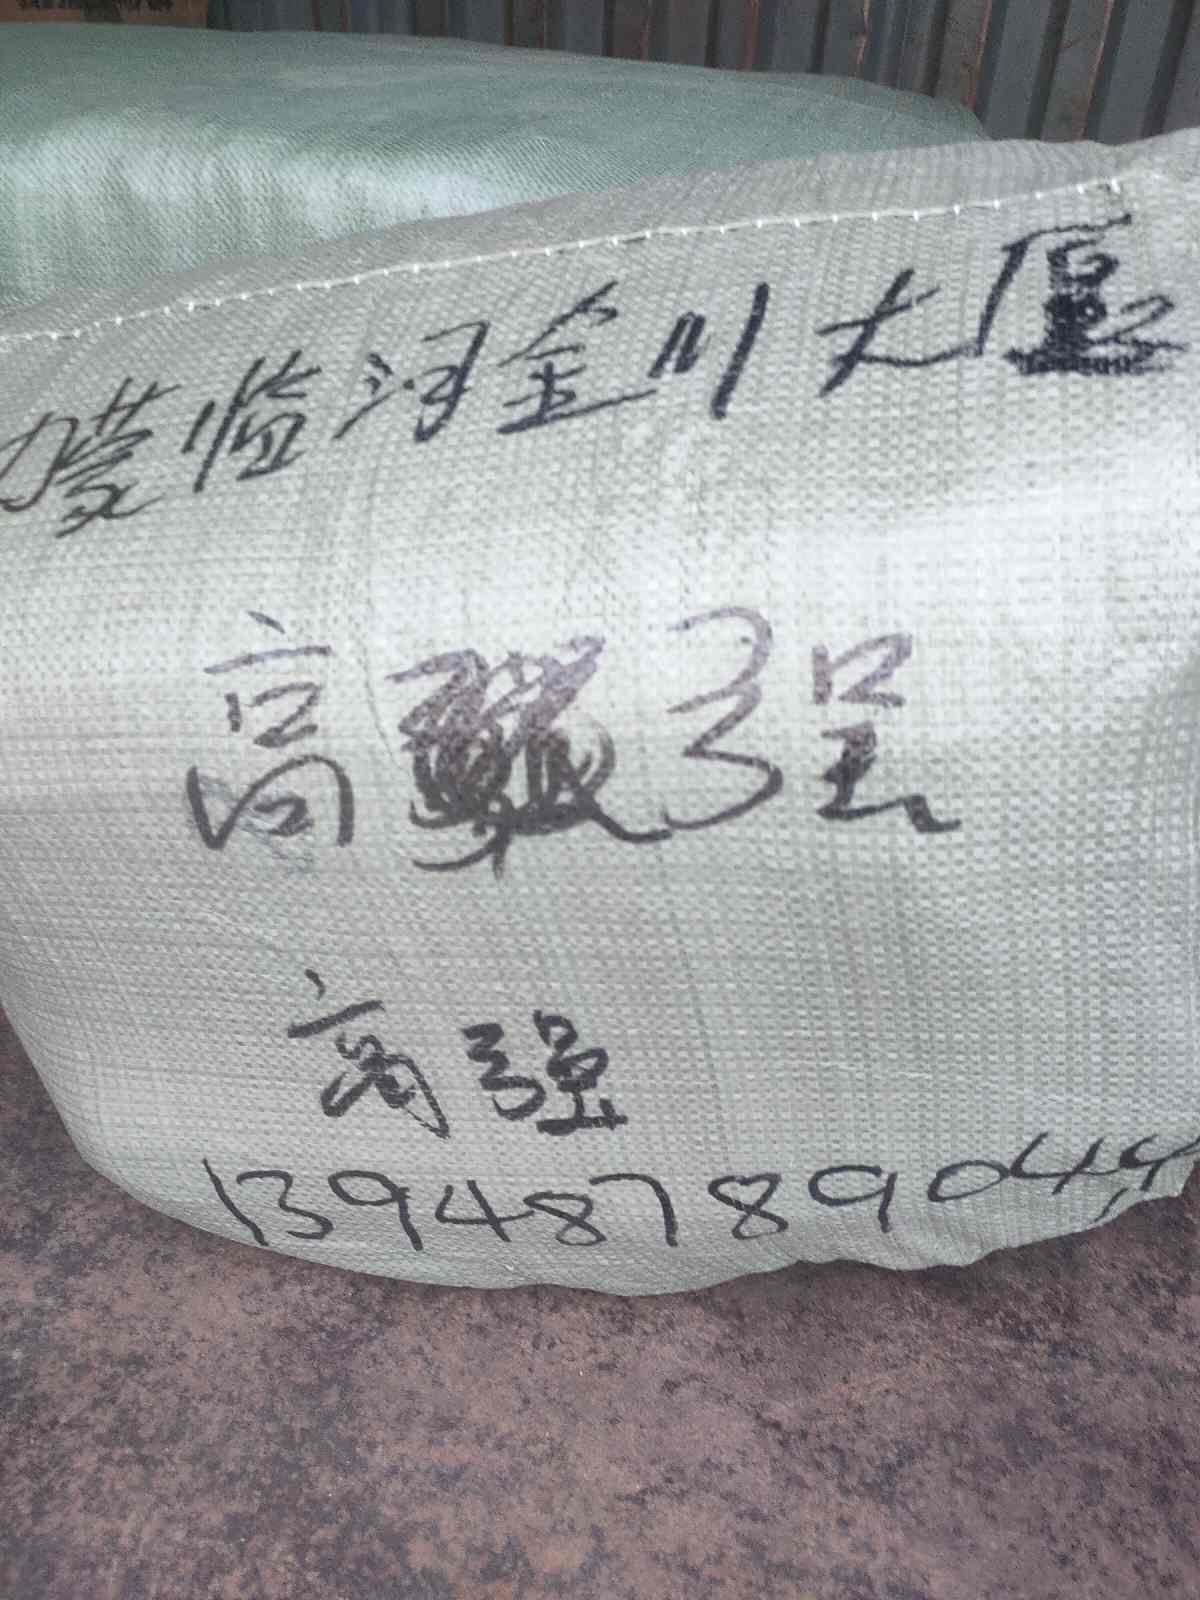 蒙临河金川大厦
高 强
高强
13948789044